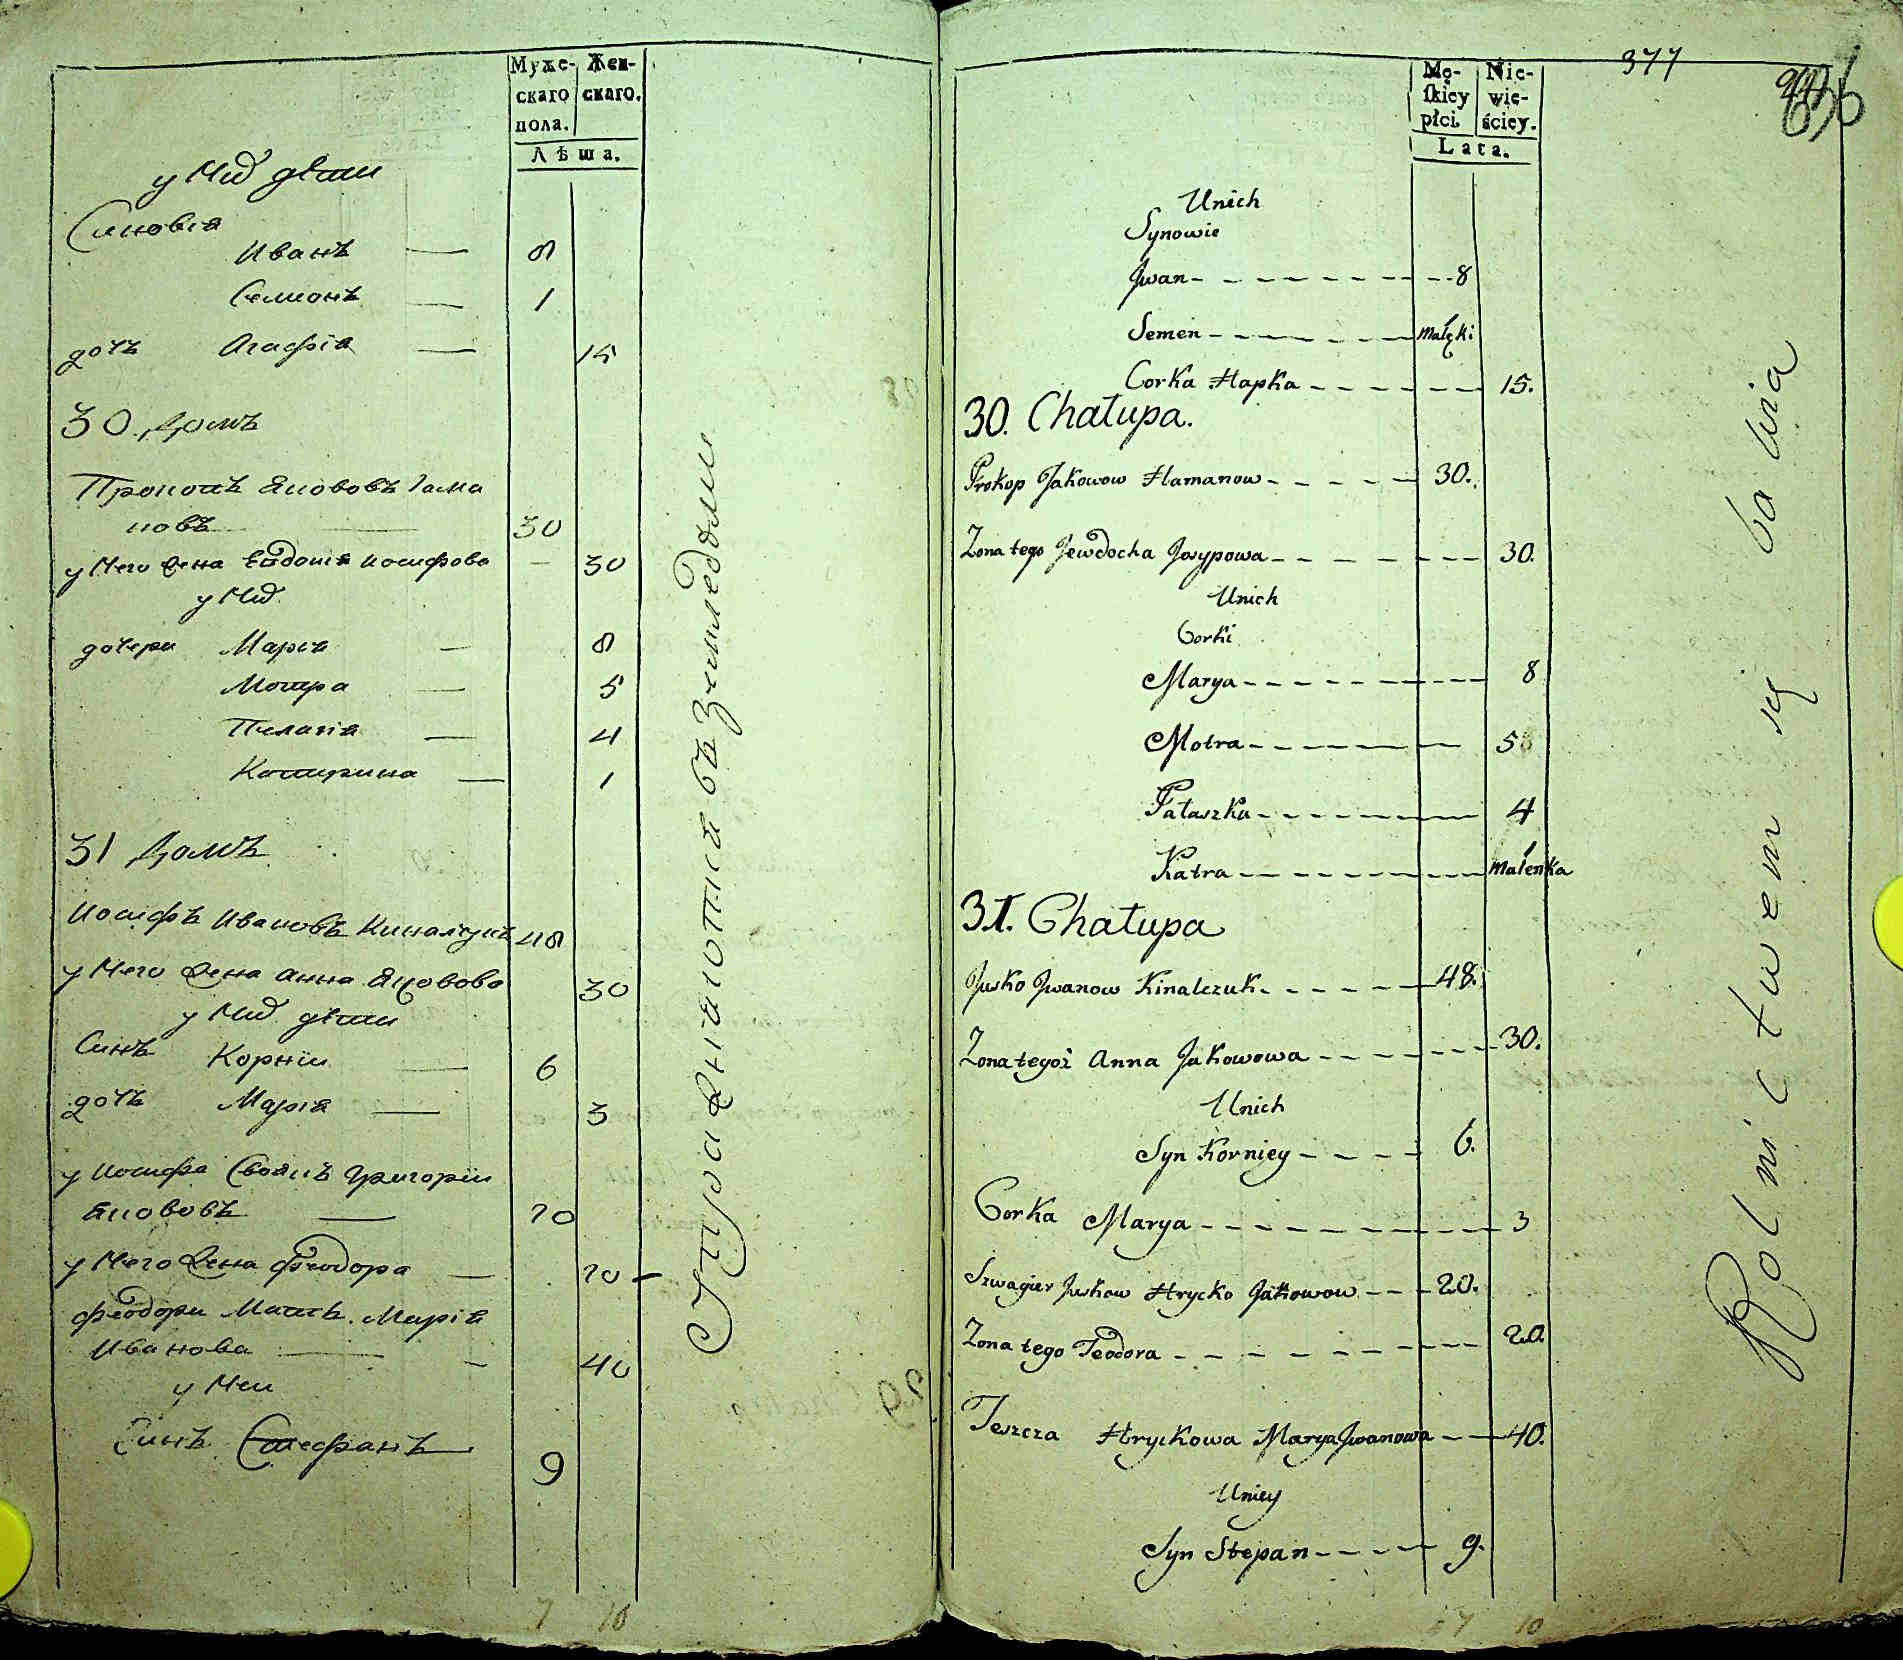 Муже-
скаго
пола.
Жен-
скаго.
Лѣта.
у Них дѣти
Синовія
Иванъ — 8
Семионъ — 1
дочь Агафія — 15
30 Домъ
Прокопъ Якововъ Гама
новъ — 30
у Него жена Евдокія Иосифова — 30
у Них
дочери Марія — 8
Мотра — 5
Пелагія — 4
Катерина — 1
31 Домъ
Иосифъ Ивановъ Киналчукъ 48
у Него жена Анна Яковова 30
у Них дѣти
Синъ Корнїи — 6
дочь Марія — 3
у Иосифа Своякъ Григорїи
Якововъ — 20
у Него жена Феодора — 20
Феодори Мать Марія
Иванова — 40
у Неи
Синъ Стефанъ 9
7 10
Упражняются въ земледѣли
Mę-
skiey
płci.
Nie-
wie-
ściey.
Lata.
377
Unich
Synowie
Jwan 8
Semen małęki
Corka Hapka 15.
30. Chałupa.
Prokop Jakowow Hamanow 30.
Zona tego Jewdocha Josypowa 30.
Unich
Corki
Marya 8
Motra 5
Pałaszka 4
Katra maleńka
31. Chałupa
Jusko Jwanow Kinalczuk 48.
Zona tegoż Anna Jakowowa 30.
Unich
Syn Korniey 6.
Corka Marya 3
Szwagier Juskow Hrycko Jakowow 20.
Zona tego Teodora 20.
Teszcza Hryckowa Marya Jwanowa 40.
Uniey
Syn Stepan 9.
7 10
Rolnictwem się bawia